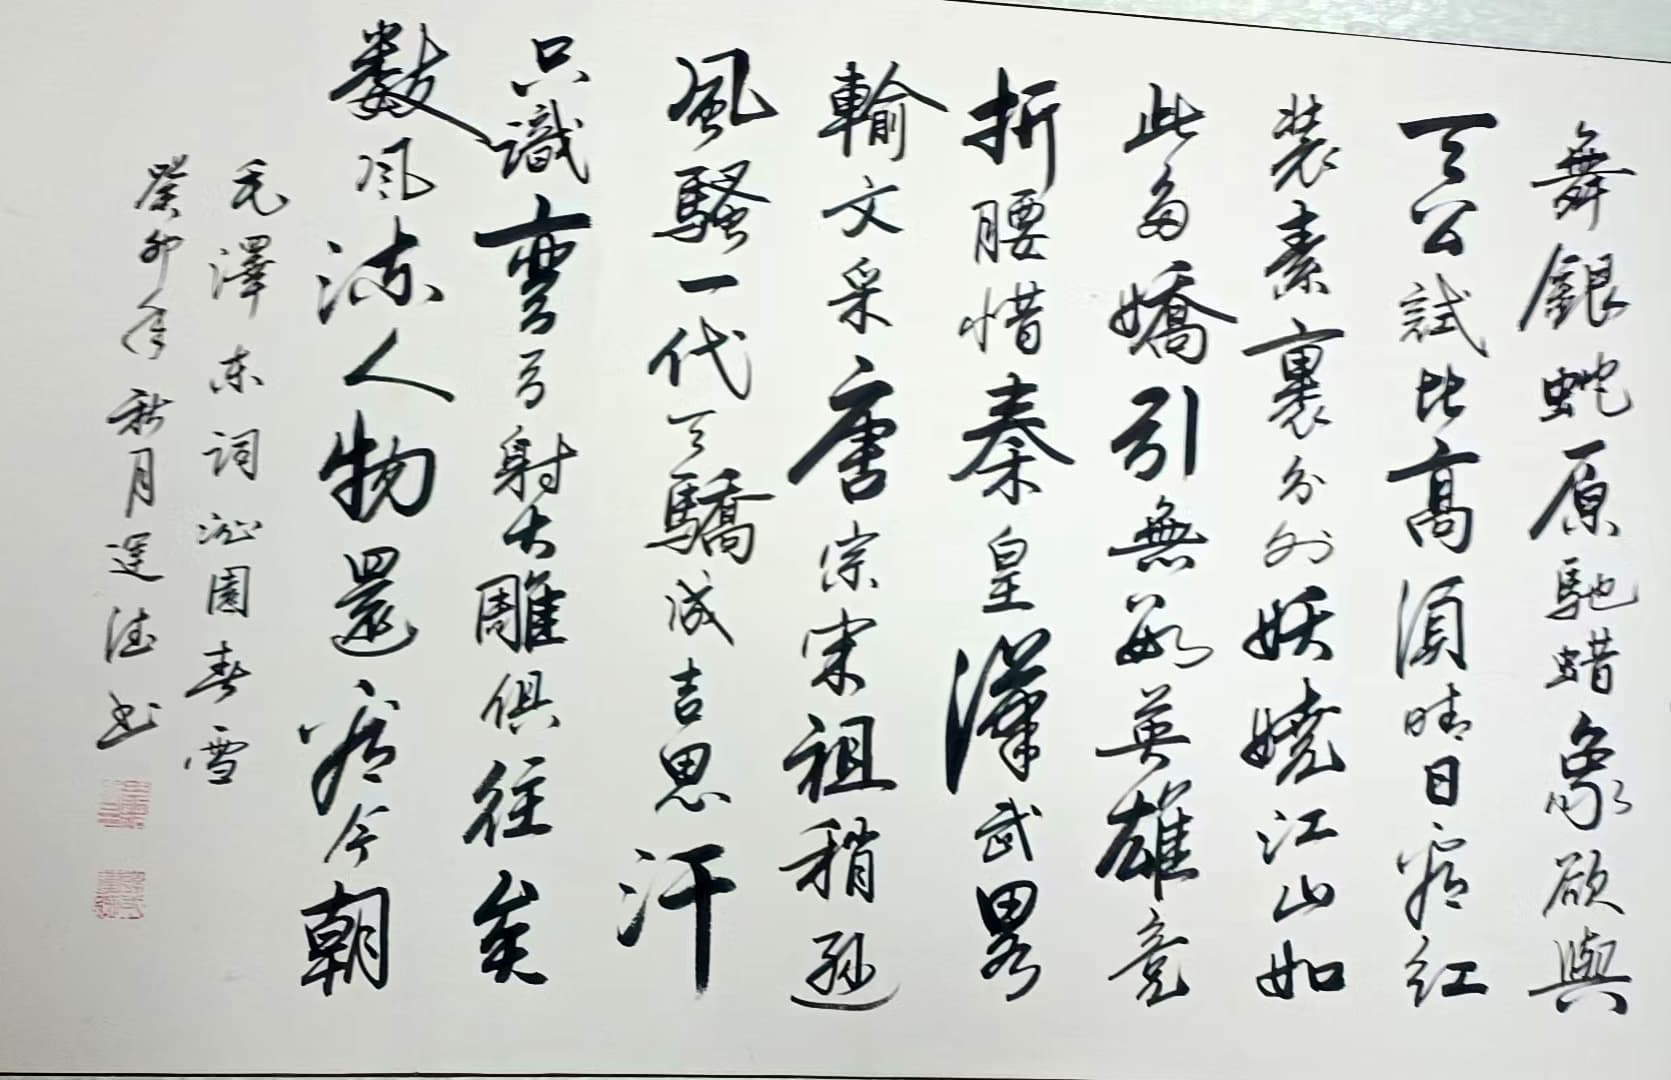 舞銀蛇原馳蜡象欲與
天公試比高須晴日看紅
裝素裹分外妖嬈江山如
此多嬌引無數英雄竞
折腰惜秦皇漢武畧
輸文采唐宗宋祖稍遜
風騷一代天驕成吉思汗
只識彎弓射大雕俱往矣
數風流人物還看今朝
毛澤东詞沁園春雪
癸卯年秋月運德书